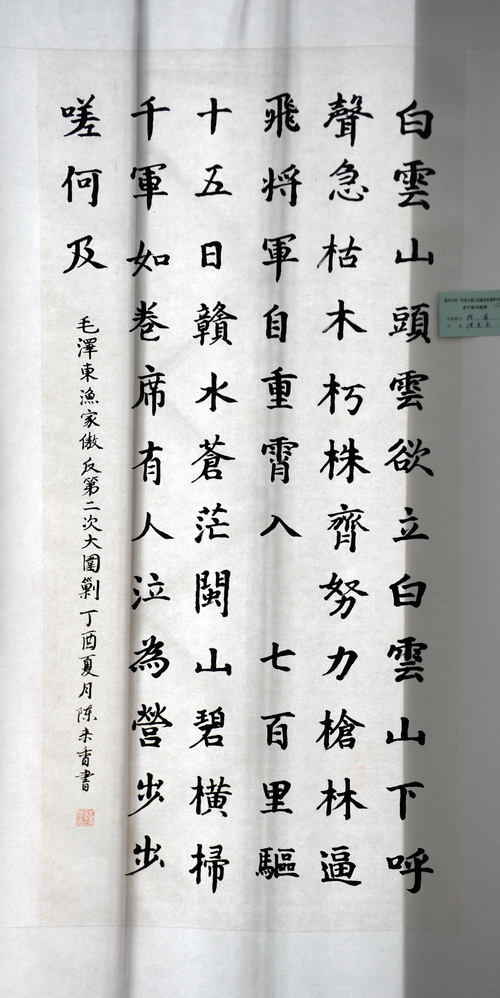 白雲山頭雲欲立白雲山下呼
聲急枯木朽株齊努力槍林逼
飛将軍自重霄入 七百里驅
十五日贛水蒼茫閩山碧橫掃
千軍如卷席有人泣為營步步
嗟何及
毛澤東漁家傲反第二次大圍剿 丁酉夏月陈来香書